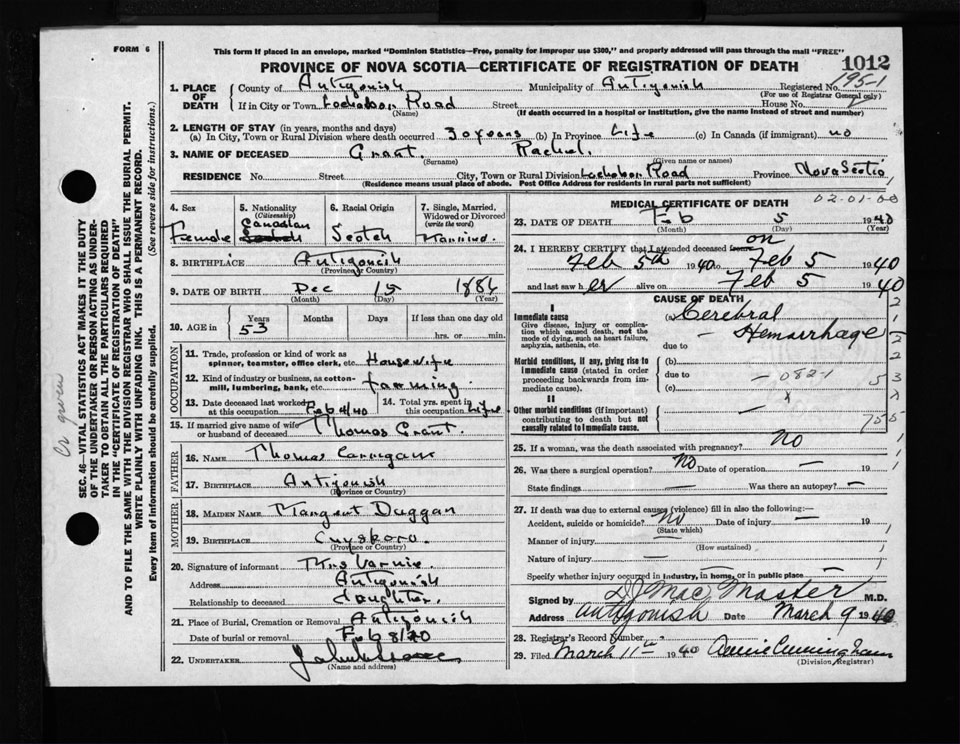 FORM 6
This form if placed in an envelope, marked "Dominion Statistics—Free, penalty for improper use $300," and properly addressed will pass through the mail "FREE"
PROVINCE OF NOVA SCOTIA—CERTIFICATE OF REGISTRATION OF DEATH
1012
195-1
1. PLACE OF DEATH
County of Antigonish Municipality of Antigonish Registered No.
(For use of Registrar General only)
If in City or Town Lochabor Road Street House No.
(Name) (If death occurred in a hospital or institution, give the name instead of street and number)
2. LENGTH OF STAY (in years, months and days)
(a) In City, Town or Rural Division where death occurred 30 years (b) In Province Life (c) In Canada (if immigrant) no
3. NAME OF DECEASED Grant. Rachel.
(Surname) (Given name or names)
RESIDENCE No. Street City, Town or Rural Division Lochabor Road Province Nova Scotia
(Residence means usual place of abode. Post Office Address for residents in rural parts not sufficient)
4. Sex
Female
5. Nationality (Citizenship)
Canadian
Scotch
6. Racial Origin
Scotch
7. Single, Married, Widowed or Divorced (write the word)
Married.
8. BIRTHPLACE Antigonish
(Province or Country)
9. DATE OF BIRTH Dec 15 1886
(Month) (Day) (Year)
10. AGE in
Years Months Days If less than one day old
53 hrs. or min.
OCCUPATION
11. Trade, profession or kind of work as spinner, teamster, office clerk, etc. Housewife
12. Kind of industry or business, as cotton-mill, lumbering, bank, etc. farming.
13. Date deceased last worked at this occupation Feb 4/40
14. Total yrs. spent in this occupation Life
15. If married give name of wife or husband of deceased Thomas Grant.
FATHER
16. Name Thomas
17. Birthplace Antigonish
(Province or Country)
MOTHER
18. Maiden Name Margaret Duggan
19. Birthplace Guysboro.
(Province or Country)
20. Signature of informant Mrs
Address Antigonish
Relationship to deceased daughter.
21. Place of Burial, Cremation or Removal Antigonish
Date of burial or removal Feb 8/40
22. Undertaker
(Name and address)
MEDICAL CERTIFICATE OF DEATH
02-01-00
23. DATE OF DEATH Feb 5 1940
(Month) (Day) (Year)
24. I HEREBY CERTIFY that I attended deceased from on
Feb 5th 1940 to Feb 5 1940
and last saw her alive on Feb 5 1940
CAUSE OF DEATH
I
Immediate cause
Give disease, injury or complication which caused death, not the mode of dying, such as heart failure, asphyxia, asthenia, etc.
(a) Cerebral
— Hemorrhage
due to
Morbid conditions, if any, giving rise to immediate cause (stated in order proceeding backwards from immediate cause).
(b)
due to
(c) — 082-1
II
Other morbid conditions (if important) contributing to death but not causally related to immediate cause.
25. If a woman, was the death associated with pregnancy? No
26. Was there a surgical operation? No Date of operation — 19
State findings — Was there an autopsy? —
27. If death was due to external causes (violence) fill in also the following:—
Accident, suicide or homicide? No Date of injury — 19
(State which)
Manner of injury —
(How sustained)
Nature of injury —
Specify whether injury occurred in industry, in home, or in public place —
Signed by D. J. MacMaster M.D.
Address Antigonish Date March 9 1940
28. Registrar's Record Number
29. Filed March 11th 1940 Annie Cunningham
(Division Registrar)
SEC. 46—VITAL STATISTICS ACT MAKES IT THE DUTY OF THE UNDERTAKER OR PERSON ACTING AS UNDERTAKER TO OBTAIN ALL THE PARTICULARS REQUIRED IN THE "CERTIFICATE OF REGISTRATION OF DEATH" AND TO FILE THE SAME WITH THE DIVISION REGISTRAR WHO SHALL ISSUE THE BURIAL PERMIT.
WRITE PLAINLY WITH UNFADING INK. THIS IS A PERMANENT RECORD.
Every item of information should be carefully supplied. (See reverse side for instructions.)